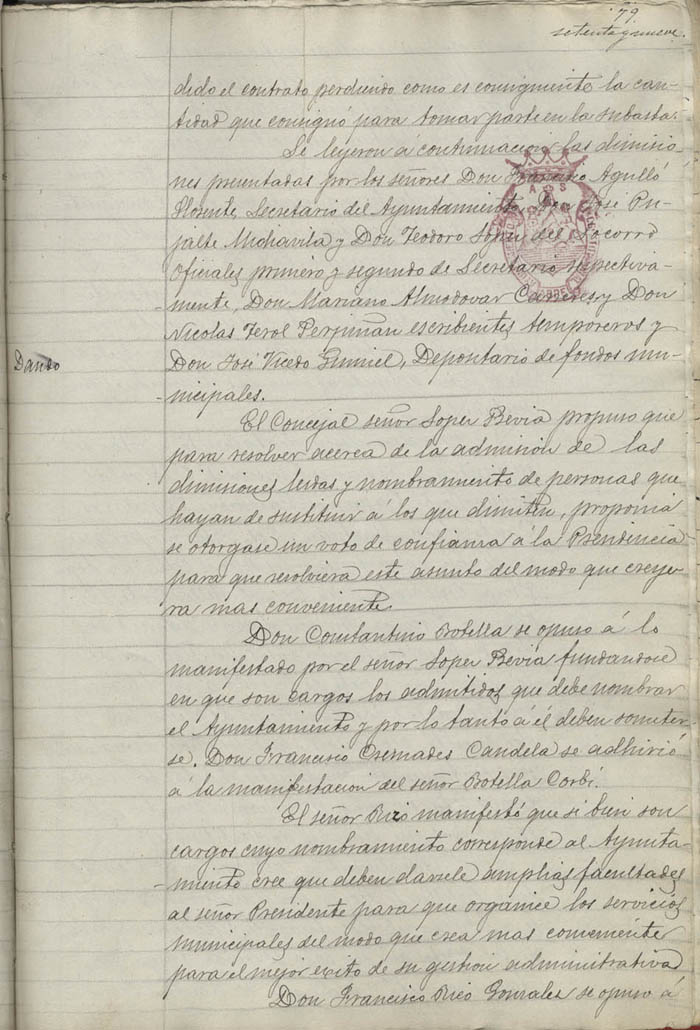 79.
setenta y nueve.
dido el contrato perdiendo como es consiguiente la can-
-tidad que consignó para tomar parte en la subasta.
Se leyeron á continuacion las dimisio-
nes presentadas por los señores Don Francisco Agulló
Llorente, Secretario del Ayuntamiento, Don José Pu-
jalte Michavila y Don Teodoro del Socorro
Oficiales primero y segundo de Secretaria respectiva-
-mente, Don Mariano Almodovar Carreres y Don
Nicolas Terol Perpiñan escribientes temporeros y
Dando
Don José Vicedo Gumiel, Depositario de fondos mu-
-nicipales.
El Concejal señor Soper Bevia propuso que
para resolver acerca de la admision de las
dimisiones leidas y nombramiento de personas que
hayan de sustituir á los que dimiten, proponia
se otorgase un voto de confianza á la Presidencia
para que resolviera este asunto del modo que creye-
ra mas conveniente.
Don Constantino Botella se opuso á lo
manifestado por el señor Soper Bevia fundandose
en que son cargos los admitidos que debe nombrar
el Ayuntamiento y por lo tanto á él deben someter-
se. Don Francisco Cremades Candela se adhirió
á la manifestacion del señor Botella Corbí.
El señor Rizo manifestó que si bien son
cargos cuyo nombramiento corresponde al Ayunta-
-miento cree que deben darsele amplias facultades
al señor Presidente para que organice los servicios
municipales del modo que crea mas conveniente
para el mejor exito de su gestion administrativa
Don Francisco Rico Gonzales se opuso á